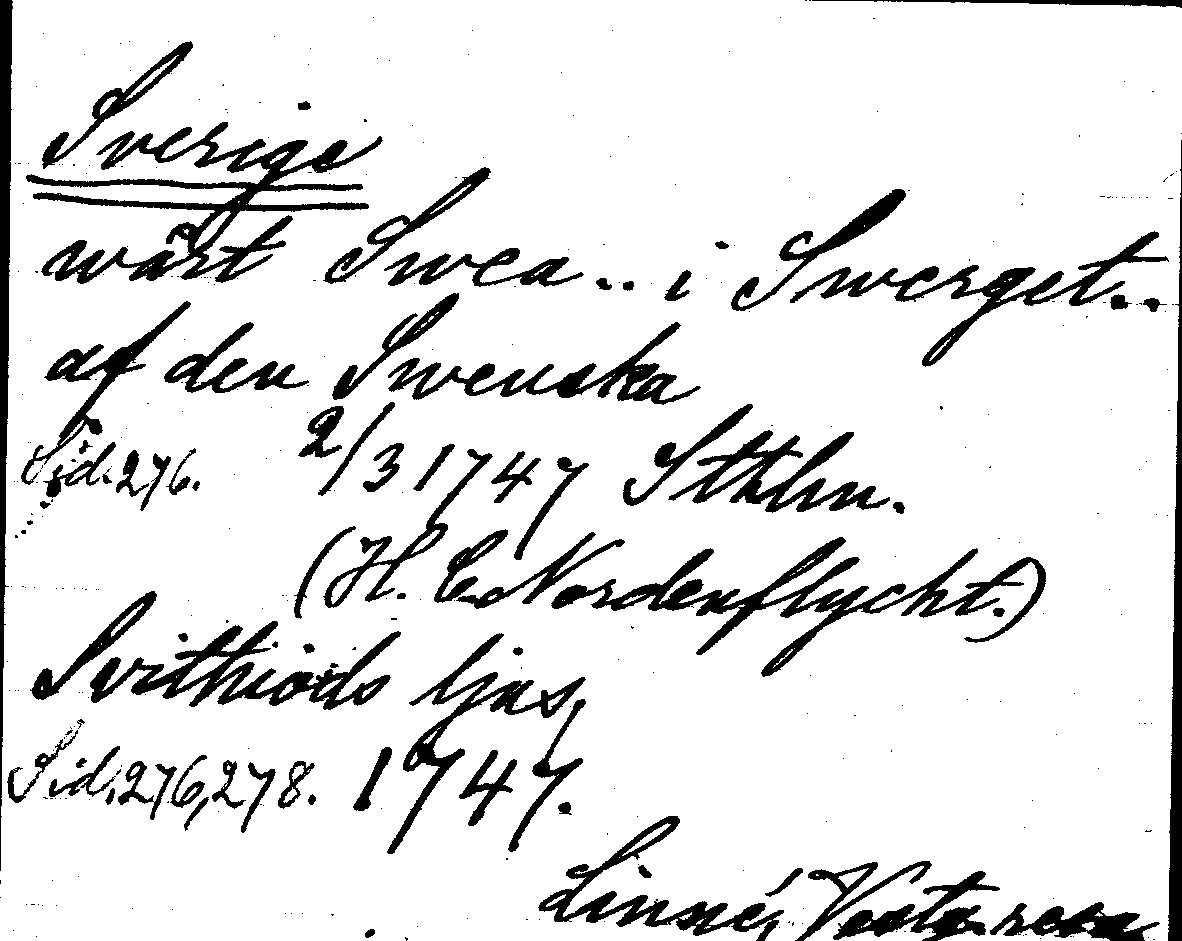 Sverige
wårt Swea.. i Swerget..
af den Swenska
Sid. 276. 2/3 1747 Sthlm.
(H. C. Nordenflycht.)
Svithiods ljus,
Sid. 276, 278. 1747.
Linné, Vestg. resa